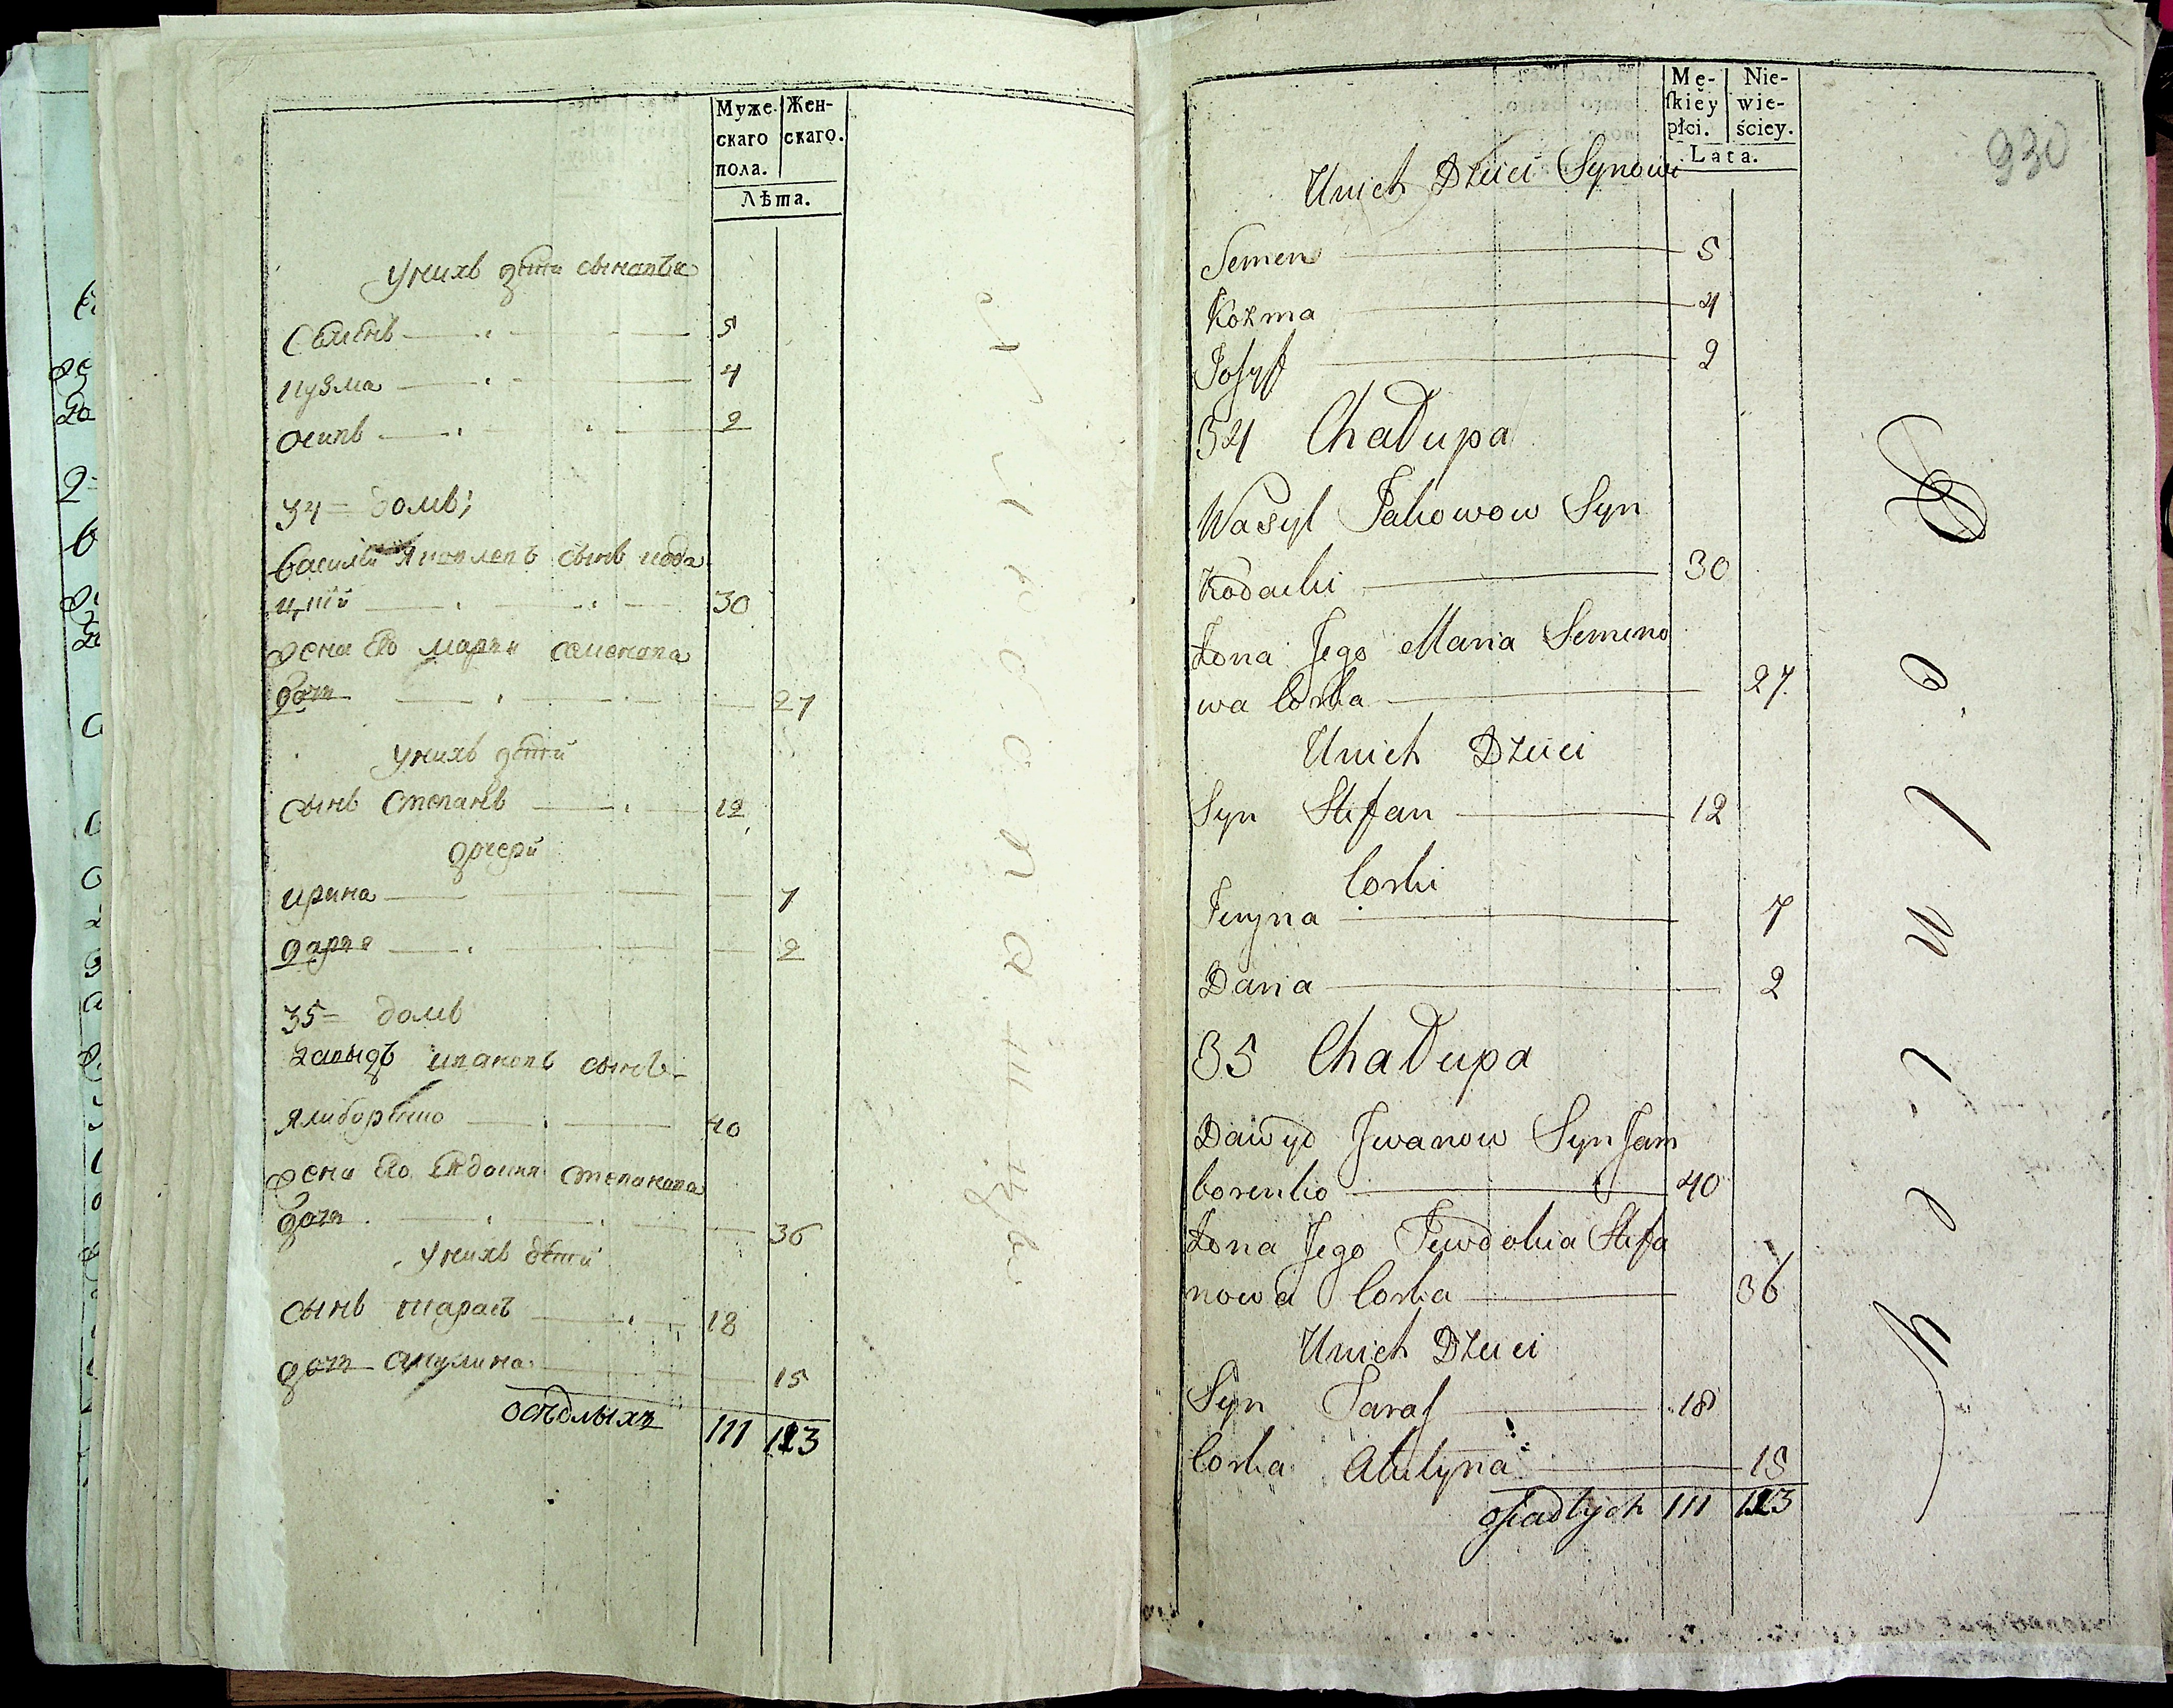 Муже- Жен-
скаго скаго.
пола.
Лѣта.
Унихъ дѣти сыновья
Семенъ 5
Кузма 4
Осипъ 2
34 = домъ;
Василій Яковлевъ сынъ Кода
цкій 30
Жена Его Марья Семенова
дочь 27
Унихъ дѣти
Сынъ Степанъ 12
дочери
Ирина 7
Дарья 2
35 = домъ
Давыдъ Ивановъ сынъ
Ямборенко 40
Жена Его Евдокия Степанова
дочь 36
Унихъ дѣти
Сынъ Тарасъ 18
дочь Акулина 15
осѣдлыхъ 111 123
Mę- Nie-
ſkiey wie-
płci. ściey.
Lata.
930
Unich Dzieci Synowie
Semen 5
Kozma 4
Josyf 2
34 Chałupa
Wasyl Jakowow Syn
Kodacki 30
Żona Jego Maria Semeno
wa Corka 27
Unich Dzieci
Syn Stefan 12
Corki
Iryna 7
Daria 2
35 Chałupa
Dawyd Jwanow Syn Jam
borenko 40
Żona Jego Jewdokia Stefa
nowa Corka 36
Unich Dzieci
Syn Taras 18
Corka Akulyna 15
osiadłych 111 123